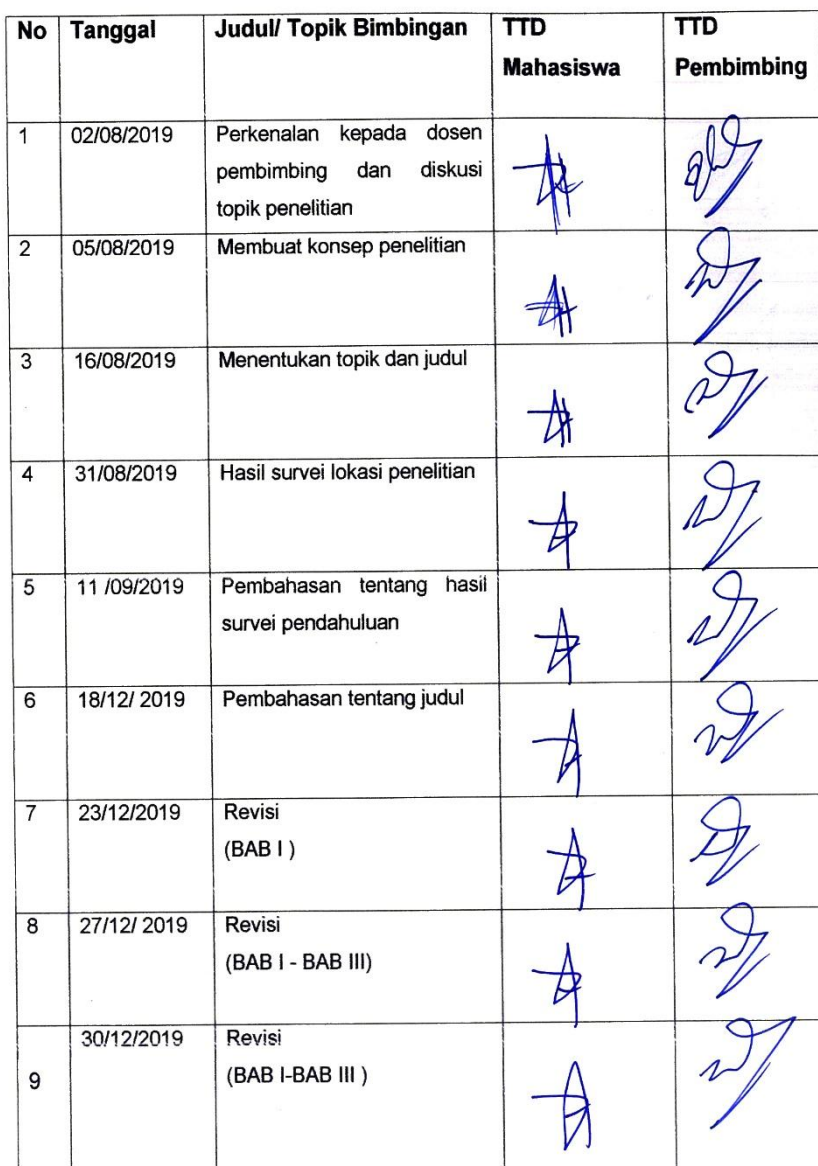 No Tanggal Judul/ Topik Bimbingan TTD TTD
Mahasiswa Pembimbing
1 02/08/2019 Perkenalan kepada dosen
pembimbing dan diskusi
topik penelitian
2 05/08/2019 Membuat konsep penelitian
3 16/08/2019 Menentukan topik dan judul
4 31/08/2019 Hasil survei lokasi penelitian
5 11 /09/2019 Pembahasan tentang hasil
survei pendahuluan
6 18/12/ 2019 Pembahasan tentang judul
7 23/12/2019 Revisi
(BAB I )
8 27/12/ 2019 Revisi
(BAB I - BAB III)
30/12/2019 Revisi
9 (BAB I-BAB III )